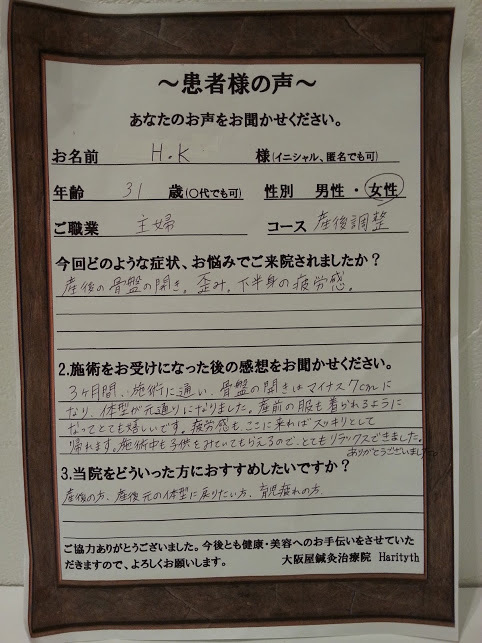 ～患者様の声～
あなたのお声をお聞かせください。
お名前 H.K 様(イニシャル、匿名でも可)
年齢 31 歳(〇代でも可) 性別 男性・女性
ご職業 主婦 コース 産後調整
今回どのような症状、お悩みでご来院されましたか？
産後の骨盤の開き。歪み。下半身の疲労感。
2.施術をお受けになった後の感想をお聞かせください。
3ヶ月間、施術に通い、骨盤の開きはマイナス7cmに
なり、体型が元通りになりました。産前の服も着られるように
なってとても嬉しいです。疲労感も、ここに来ればスッキリとして
帰れます。施術中も子供をみていてもらえるので、とてもリラックスできました。
ありがとうございまし
3.当院をどういった方におすすめしたいですか？
産後の方、産後元の体型に戻りたい方、育児疲れの方
ご協力ありがとうございました。今後とも健康・美容へのお手伝いをさせていた
だきますので、よろしくお願いします。 大阪屋鍼灸治療院 Harityth